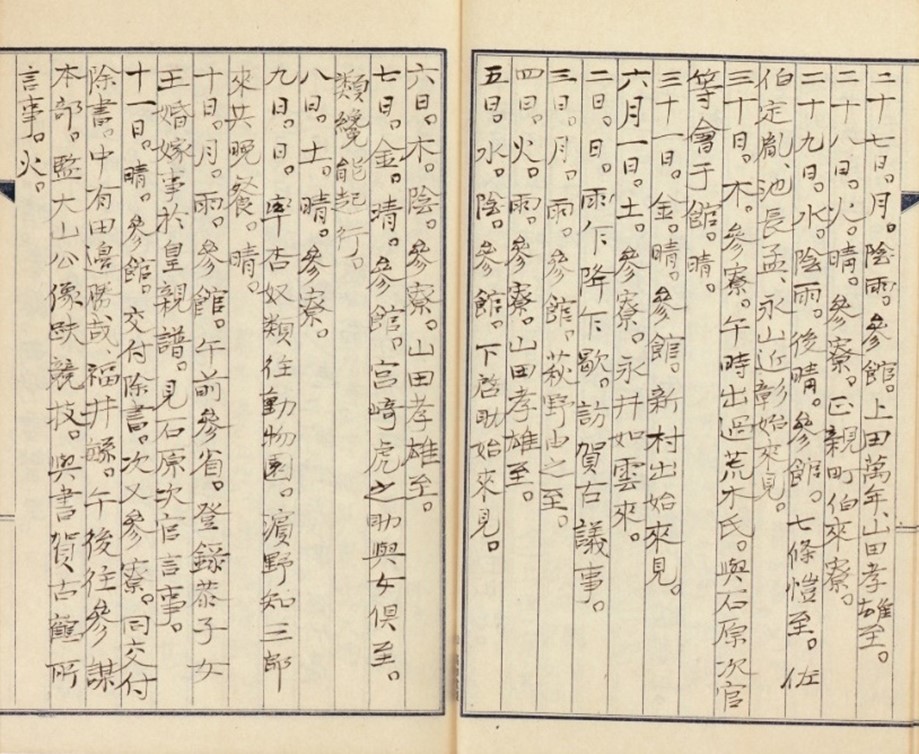 二十七日。月。陰雨。參館。上田萬年、山田孝雄至。
二十八日。火。晴。參寮。正親町伯來寮。
二十九日。水。陰雨。後晴。參館。七條愷至。佐
伯定胤、池長孟、永山近彰始來見。
三十日。木。參寮。午時出過荒木氏。與石原次官
等會于館。晴。
三十一日。金。晴。參館。新村出始來見。
六月一日。土。參寮。永井如雲來。
二日。日。雨乍降乍歇。訪賀古議事。
三日。月。雨。參館。萩野由之至。
四日。火。雨。參寮。山田孝雄至。
五日。水。陰。參館。下啓助始來見。
六日。木。陰。參寮。山田孝雄至。
七日。金。晴。參館。宮崎虎之助與女俱至。
類纔能起行。
八日。土。晴。參寮。
九日。日。率杏奴類往動物園。濱野知三郎
來共晚餐。晴。
十日。月。雨。參館。午前參省。登錄恭子女
王婚嫁事於皇親譜。見石原次官言事。
十一日。晴。參館。交付除書。次又參寮。同交付
除書。中有田邊勝哉、福井繇。午後往參謀
本部。監大山公像趺競技。與書賀古鶴所
言事。火。